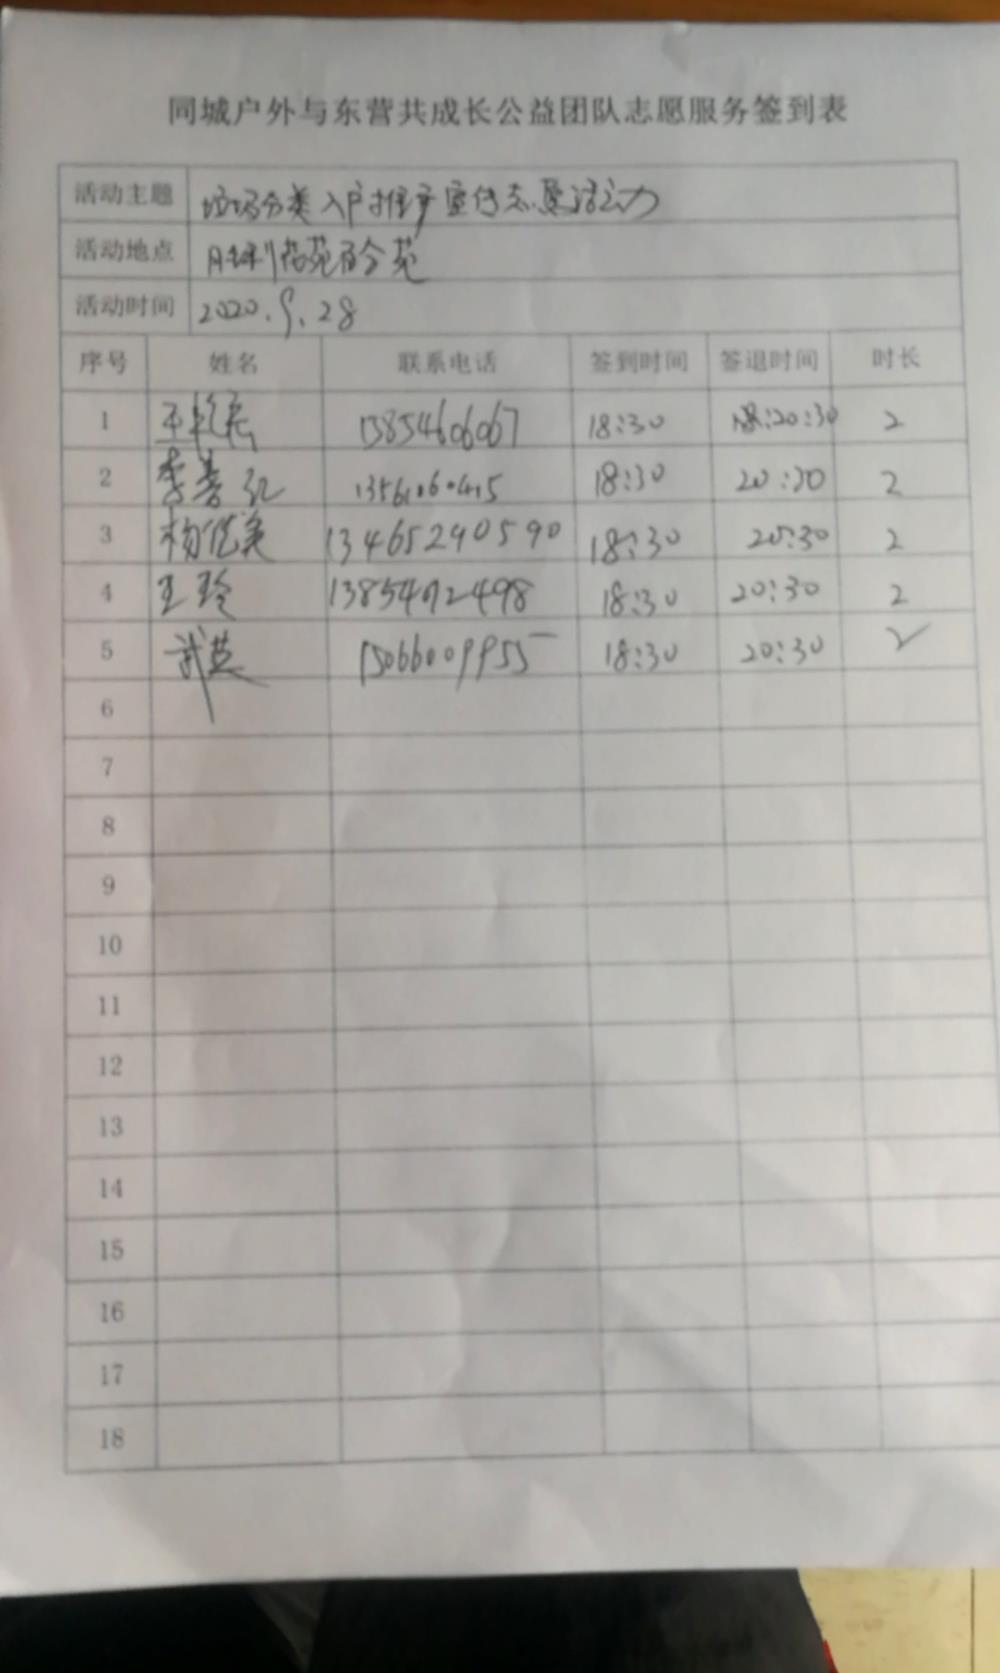 同城户外与东营共成长公益团队志愿服务签到表
活动主题 垃圾分类入户推广宣传志愿活动
活动地点 胜利尚苑百合苑
活动时间 2020.9.28
序号 姓名 联系电话 签到时间 签退时间 时长
1 王 15854606067 18:30 20:30 2
2 李 18:30 20:30 2
3 杨 美 13465290590 18:30 20:30 2
4 王玲 18:30 20:30 2
5 武英 15066009955 18:30 20:30 2
6
7
8
9
10
11
12
13
14
15
16
17
18